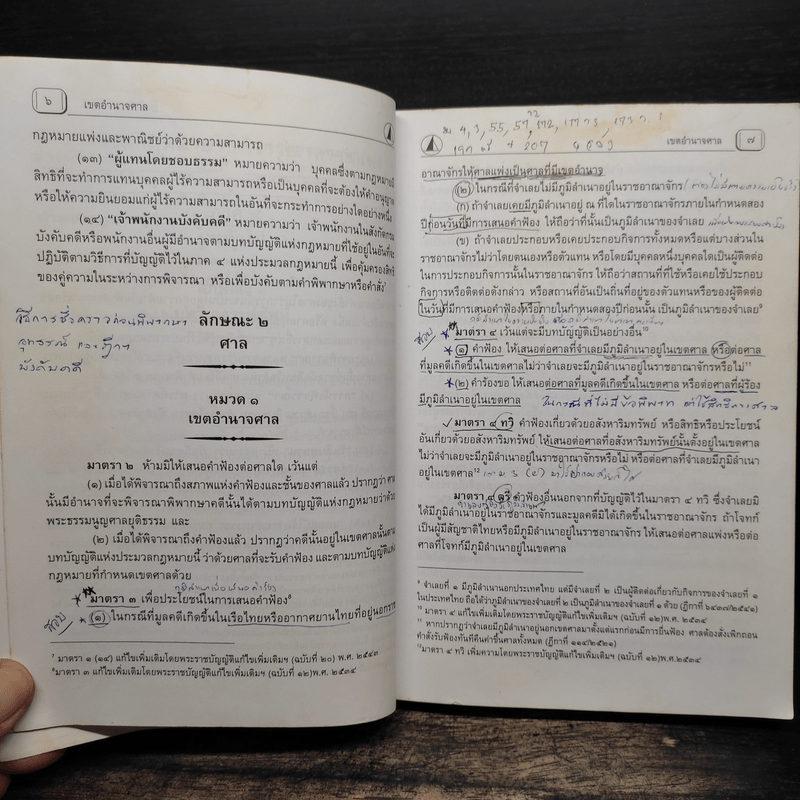 ๖ เขตอำนาจศาล
กฎหมายแพ่งและพาณิชย์ว่าด้วยความสามารถ
(๑๓) “ผู้แทนโดยชอบธรรม” หมายความว่า บุคคลซึ่งตามกฎหมายมี
สิทธิที่จะทำการแทนบุคคลผู้ไร้ความสามารถหรือเป็นบุคคลที่จะต้องให้คำอนุญาต
หรือให้ความยินยอมแก่ผู้ไร้ความสามารถในอันที่จะกระทำการอย่างใดอย่างหนึ่ง
(๑๔) “เจ้าพนักงานบังคับคดี” หมายความว่า เจ้าพนักงานในสังกัดกรม
บังคับคดีหรือพนักงานอื่นผู้มีอำนาจตามบทบัญญัติแห่งกฎหมายที่ใช้อยู่ในอันที่จะ
ปฏิบัติตามวิธีการที่บัญญัติไว้ในภาค ๔ แห่งประมวลกฎหมายนี้ เพื่อคุ้มครองสิทธิ
ของคู่ความในระหว่างการพิจารณา หรือเพื่อบังคับตามคำพิพากษาหรือคำสั่ง⁷
วิธีการชั่วคราวก่อนพิพากษา
อุทธรณ์ และฎีกา
บังคับคดี
ลักษณะ ๒
ศาล
หมวด ๑
เขตอำนาจศาล
มาตรา ๒ ห้ามมิให้เสนอคำฟ้องต่อศาลใด เว้นแต่
(๑) เมื่อได้พิจารณาถึงสภาพแห่งคำฟ้องและชั้นของศาลแล้ว ปรากฏว่า ศาล
นั้นมีอำนาจที่จะพิจารณาพิพากษาคดีนั้นได้ตามบทบัญญัติแห่งกฎหมายว่าด้วย
พระธรรมนูญศาลยุติธรรม และ
(๒) เมื่อได้พิจารณาถึงคำฟ้องแล้ว ปรากฏว่าคดีนั้นอยู่ในเขตศาลนั้นตาม
บทบัญญัติแห่งประมวลกฎหมายนี้ ว่าด้วยศาลที่จะรับคำฟ้อง และตามบทบัญญัติแห่ง
กฎหมายที่กำหนดเขตศาลด้วย
มาตรา ๓ เพื่อประโยชน์ในการเสนอคำฟ้อง⁸
(๑) ในกรณีที่มูลคดีเกิดขึ้นในเรือไทยหรืออากาศยานไทยที่อยู่นอกราช
⁷ มาตรา ๑ (๑๔) แก้ไขเพิ่มเติมโดยพระราชบัญญัติแก้ไขเพิ่มเติมฯ (ฉบับที่ ๒๐) พ.ศ. ๒๕๔๓
⁸มาตรา ๓ แก้ไขเพิ่มเติมโดยพระราชบัญญัติแก้ไขเพิ่มเติมฯ (ฉบับที่ ๑๒)พ.ศ. ๒๕๓๔
เขตอำนาจศาล ๗
อาณาจักรให้ศาลแพ่งเป็นศาลที่มีเขตอำนาจ
(๒) ในกรณีที่จำเลยไม่มีภูมิลำเนาอยู่ในราชอาณาจักร
(ก) ถ้าจำเลยเคยมีภูมิลำเนาอยู่ ณ ที่ใดในราชอาณาจักรภายในกำหนดสอง
ปีก่อนวันที่มีการเสนอคำฟ้อง ให้ถือว่าที่นั้นเป็นภูมิลำเนาของจำเลย
(ข) ถ้าจำเลยประกอบหรือเคยประกอบกิจการทั้งหมดหรือแต่บางส่วนใน
ราชอาณาจักรไม่ว่าโดยตนเองหรือตัวแทน หรือโดยมีบุคคลหนึ่งบุคคลใดเป็นผู้ติดต่อ
ในการประกอบกิจการนั้นในราชอาณาจักร ให้ถือว่าสถานที่ที่ใช้หรือเคยใช้ประกอบ
กิจการหรือติดต่อดังกล่าว หรือสถานที่อันเป็นถิ่นที่อยู่ของตัวแทนหรือของผู้ติดต่อ
ในวันที่มีการเสนอคำฟ้องหรือภายในกำหนดสองปีก่อนนั้น เป็นภูมิลำเนาของจำเลย⁹
มาตรา ๔ เว้นแต่จะมีบทบัญญัติเป็นอย่างอื่น¹⁰
(๑) คำฟ้อง ให้เสนอต่อศาลที่จำเลยมีภูมิลำเนาอยู่ในเขตศาล หรือต่อศาล
ที่มูลคดีเกิดขึ้นในเขตศาลไม่ว่าจำเลยจะมีภูมิลำเนาอยู่ในราชอาณาจักรหรือไม่¹¹
(๒) คำร้องขอ ให้เสนอต่อศาลที่มูลคดีเกิดขึ้นในเขตศาล หรือต่อศาลที่ผู้ร้อง
มีภูมิลำเนาอยู่ในเขตศาล ในกรณีที่ไม่มีข้อพิพาท
มาตรา ๔ ทวิ คำฟ้องเกี่ยวด้วยอสังหาริมทรัพย์ หรือสิทธิหรือประโยชน์
อันเกี่ยวด้วยอสังหาริมทรัพย์ ให้เสนอต่อศาลที่อสังหาริมทรัพย์นั้นตั้งอยู่ในเขตศาล
ไม่ว่าจำเลยจะมีภูมิลำเนาอยู่ในราชอาณาจักรหรือไม่ หรือต่อศาลที่จำเลยมีภูมิลำเนา
อยู่ในเขตศาล¹²
มาตรา ๔ ตรี คำฟ้องอื่นนอกจากที่บัญญัติไว้ในมาตรา ๔ ทวิ ซึ่งจำเลยมิ
ได้มีภูมิลำเนาอยู่ในราชอาณาจักรและมูลคดีมิได้เกิดขึ้นในราชอาณาจักร ถ้าโจทก์
เป็นผู้มีสัญชาติไทยหรือมีภูมิลำเนาอยู่ในราชอาณาจักร ให้เสนอต่อศาลแพ่งหรือต่อ
ศาลที่โจทก์มีภูมิลำเนาอยู่ในเขตศาล
⁹ จำเลยที่ ๑ มีภูมิลำเนานอกประเทศไทย แต่มีจำเลยที่ ๒ เป็นผู้ติดต่อเกี่ยวกับกิจการของจำเลยที่ ๑
ในประเทศไทย ถือได้ว่าภูมิลำเนาของจำเลยที่ ๒ เป็นภูมิลำเนาของจำเลยที่ ๑ ด้วย (ฎีกาที่ ๖๔๓๗/๒๕๔๑)
¹⁰ มาตรา ๔ แก้ไขเพิ่มเติมโดยพระราชบัญญัติแก้ไขเพิ่มเติมฯ (ฉบับที่ ๑๒)พ.ศ. ๒๕๓๔
¹¹ หากปรากฏว่าจำเลยมีภูมิลำเนาอยู่นอกเขตศาลมาตั้งแต่แรกก่อนมีการยื่นฟ้อง ศาลต้องสั่งเพิกถอน
คำสั่งรับฟ้องทันทีคืนค่าขึ้นศาลทั้งหมด (ฎีกาที่ ๑๑๔/๒๕๒๑)
¹²มาตรา ๔ ทวิ เพิ่มความโดยพระราชบัญญัติแก้ไขเพิ่มเติมฯ (ฉบับที่ ๑๒)พ.ศ.๒๕๓๔